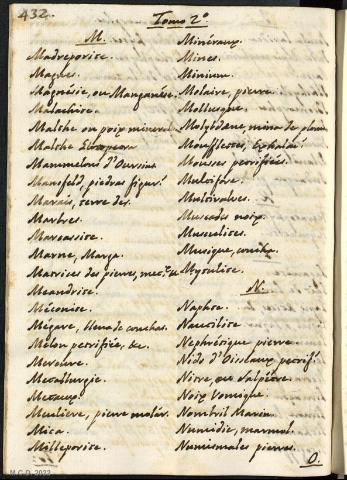 432.
Tomo 2º
M.
Madreporite.
Magnes.
Magnésie, ou Manganése.
Malachite.
Malthe ou poix mineral
Malthe Européen
Mammelons d'Oursins
Mansfeld, piedras figur.
Marais, terre des.
Marbres.
Marcassite.
Marne, Marga.
Matrises des pierres, met. &c
Meandrite.
Méconite.
Mégare, llena de conchas.
Mélon petrifiée, &c.
Mercure.
Metallurgie.
Metaux.
Meuliére, pierre molár.
Mica.
Milleporite.
Minéraux.
Mines.
Minium.
Molaire, pierre.
Mollusque.
Molybdane, mina de plom
Mouffettes, Exhalai.
Mousses petrifiées.
Multifore.
Multivalves.
Muscades noix.
Musculites.
Musique, concha.
Mytulite.
N.
Naphte.
Nautilite.
Nephrétique pierre.
Nids d'Oisseaux petrif.
Nitre, ou Salpétre.
Noix Vomique.
Nombril Marin.
Numidie, marmol.
Numismales pierres.
O.
M.C.D. 2022